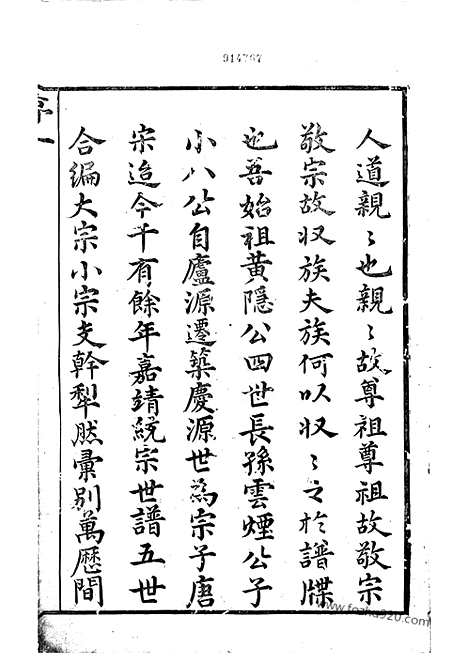 914767
人道親〻也親〻故尊祖尊祖故敬宗
敬宗故収族夫族何以収〻之於譜牒
也吾始祖黄隱公四世長孫雲煙公子
小八公自廬源遷築慶源世為宗子唐
宋迨今千有餘年嘉靖統宗世譜五世
合編大宗小宗支幹犁然彙別萬歷間
序一
www.fozhu920.com